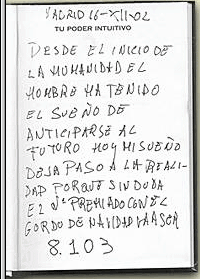 MADRID 16-XII-02
TU PODER INTUITIVO
DESDE EL INICIO DE
LA HUMANIDAD EL
HOMBRE HA TENIDO
EL SUEÑO DE
ANTICIPARSE AL
FUTURO HOY MI SUEÑO
DEJA PASO A LA REALI-
DAD PORQUE SIN DUDA
EL Nº PREMIADO CON EL
GORDO DE NAVIDAD VA A SER
8.103